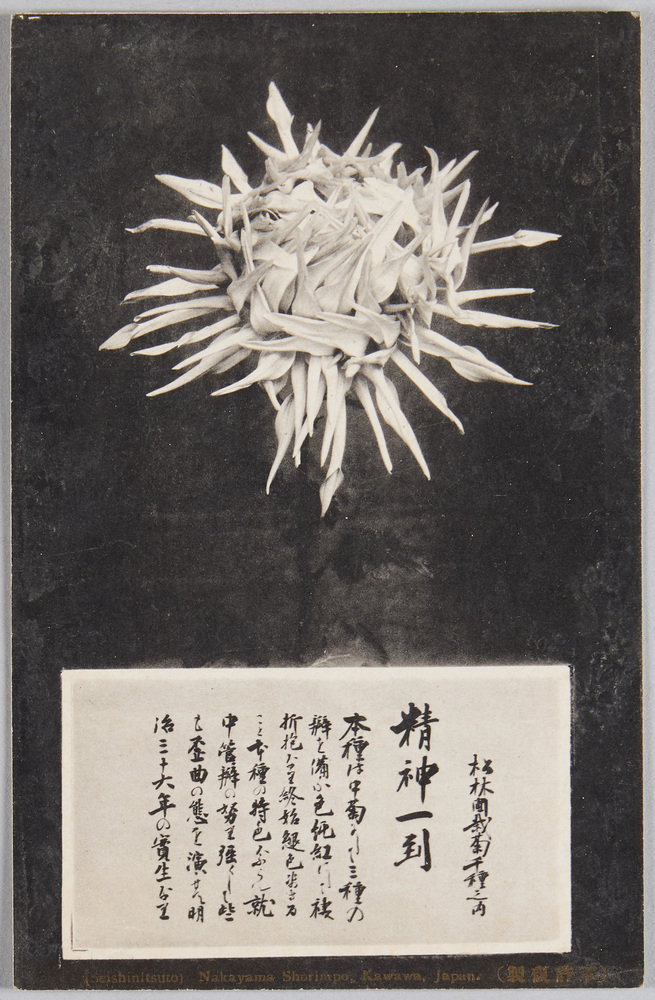 松林圃栽菊千種之内
精神一到
本種は中菊にして三種の
瓣を備ふ色純紅にして
折抱なり終始褪色せざる
こと本種の特色ならん就
中管瓣の努り強くして
も歪曲の態を演ぜん明
治三十六年の實生なり
(Seishinitsuto) Nakayama Shorimpo, Kawawa, Japan.